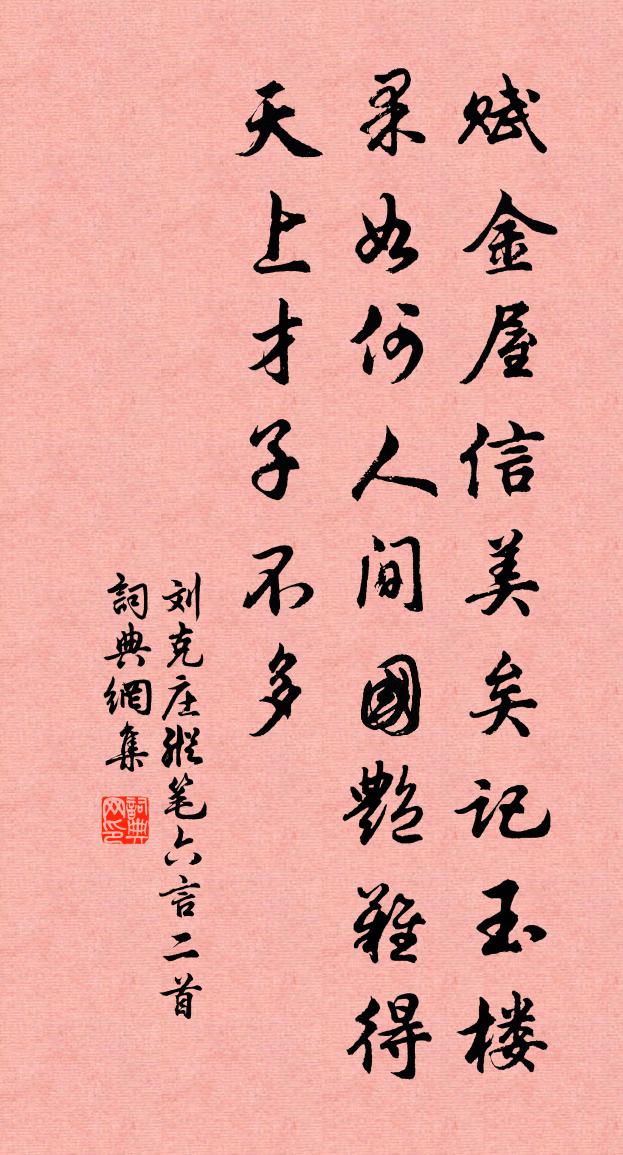 赋金屋信美矣记玉楼
果如何人间國艷難得
天上才子不多
刘克庄縱笔六言二首
詞典網集
詞典网印